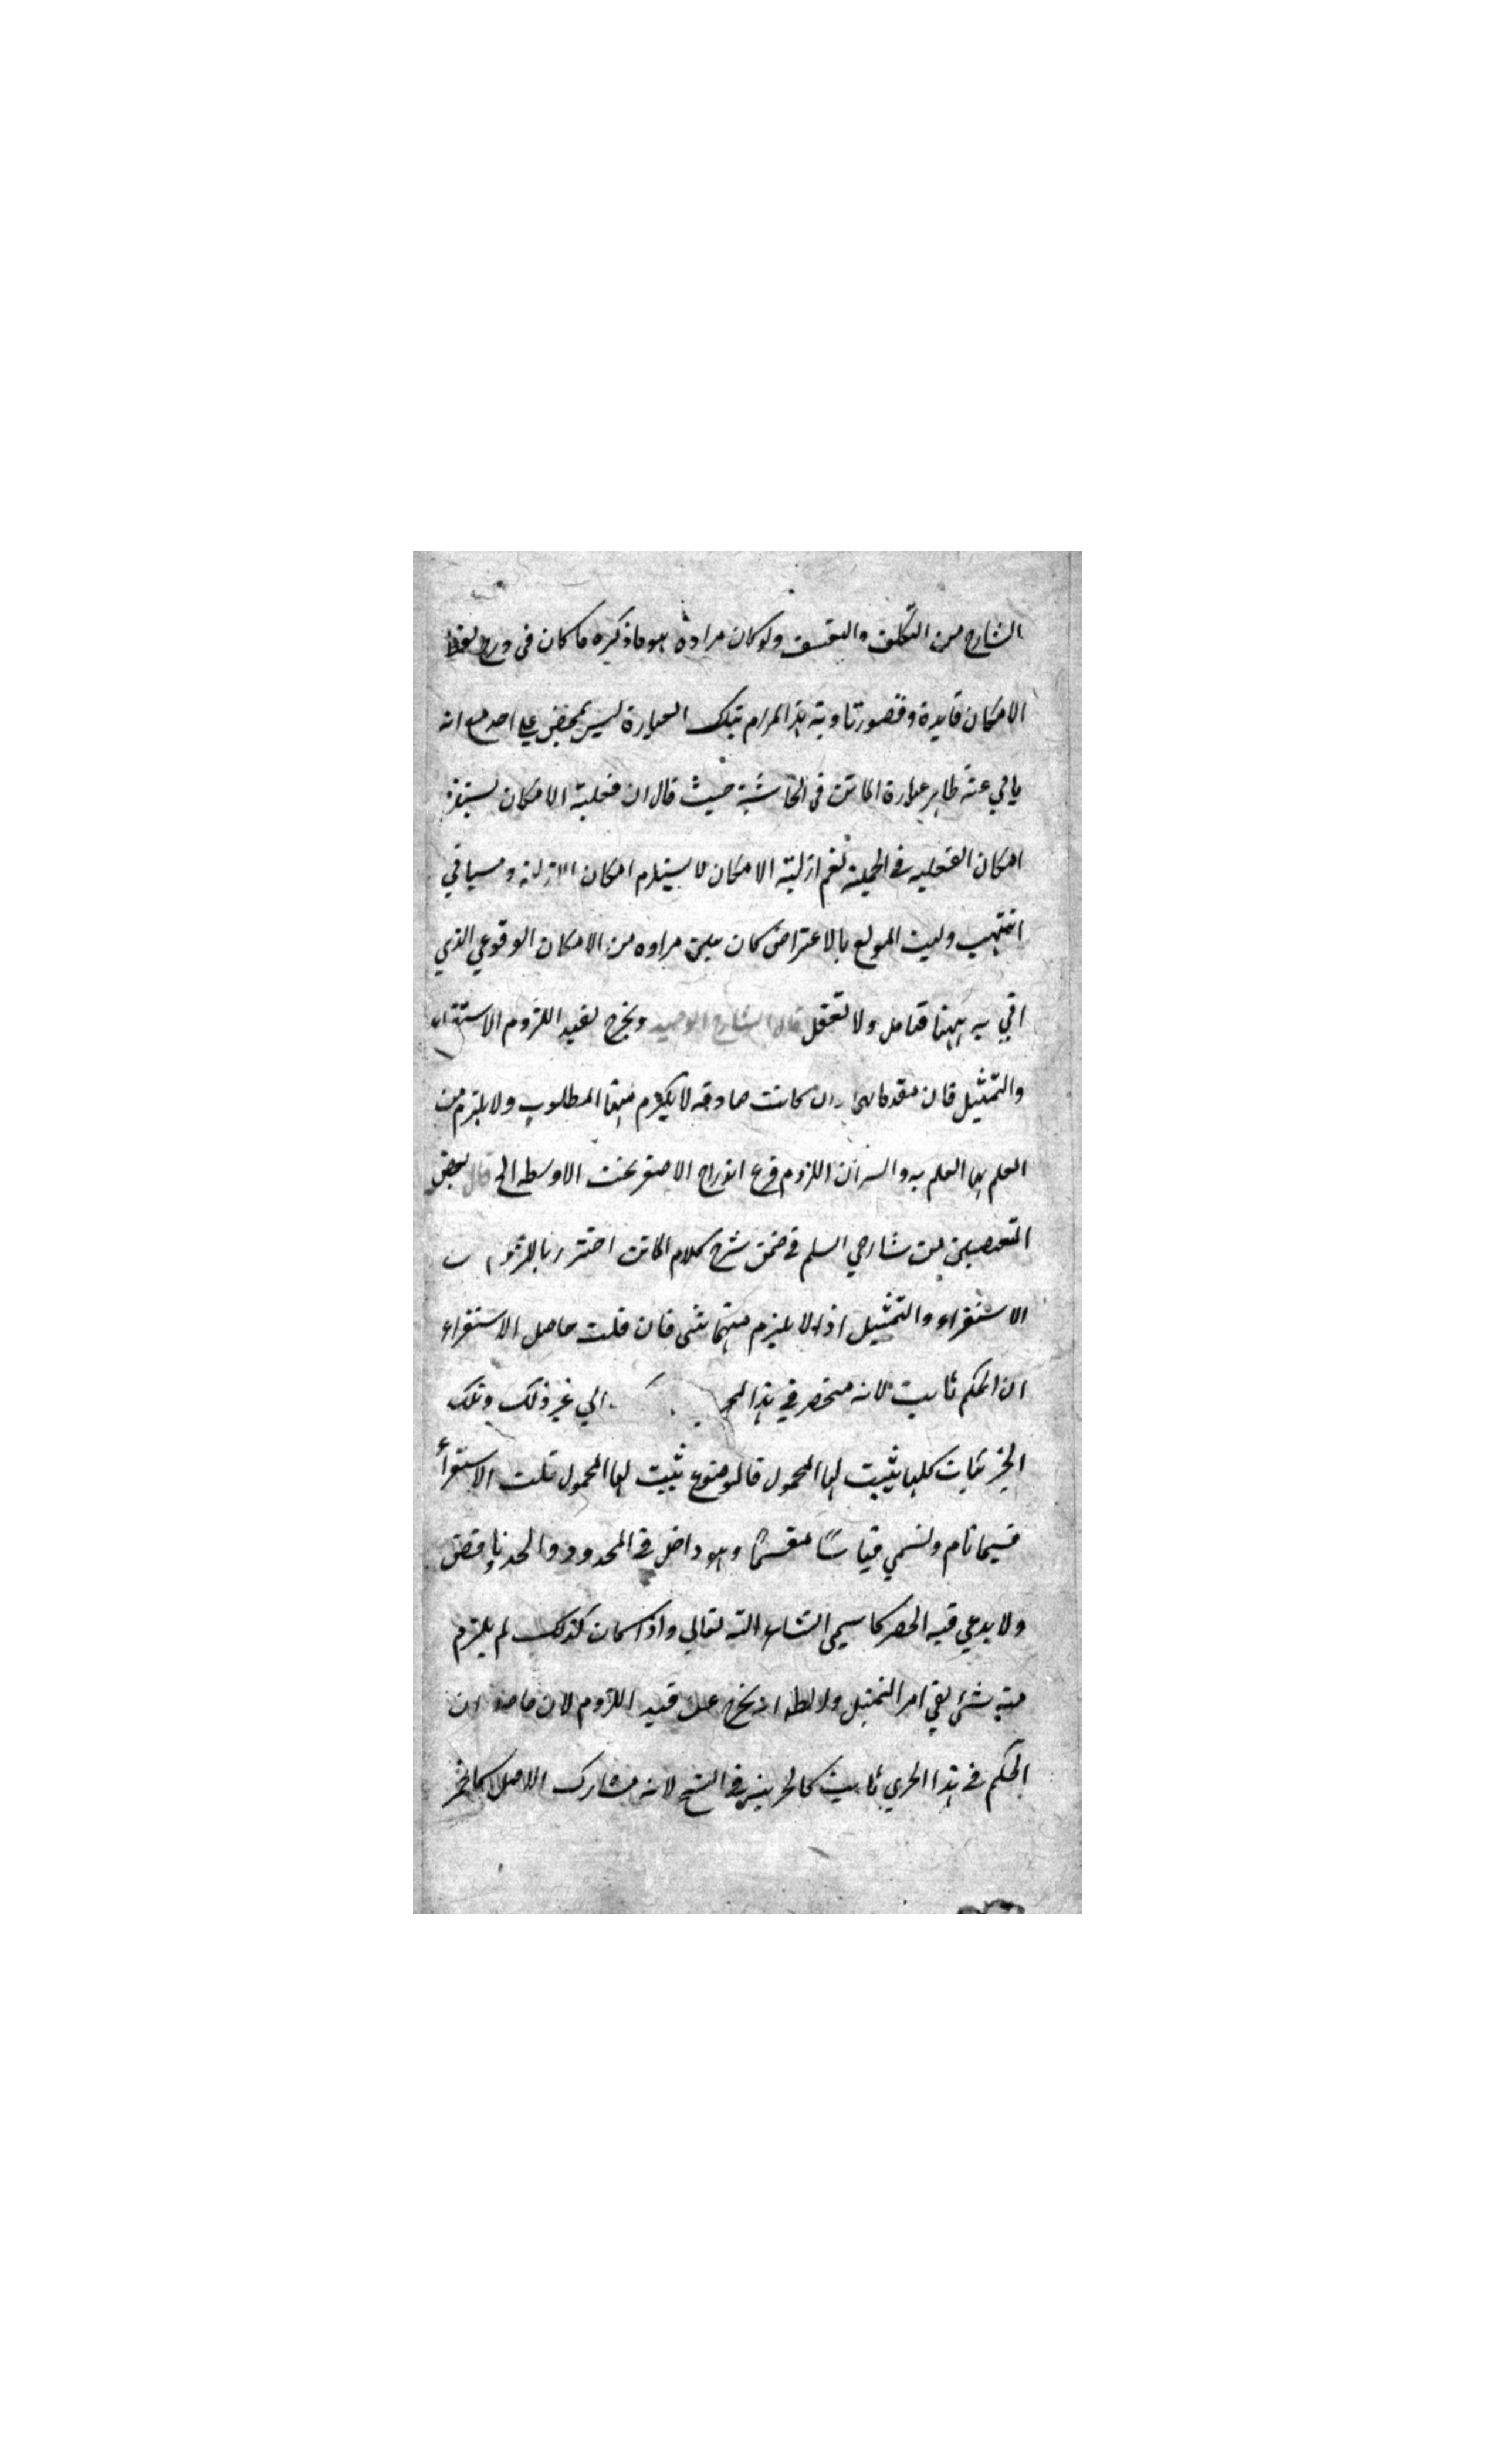 الشارح من التكلف والتعسف ولو كان مراده هو ما ذكره ما كان في درج لفظ
الامكان فايدة وقصور تاديته هذا المرام بتلك العبارة ليس بمخفي علي احد مع انه
يابي عنه ظاهر عبارة الماتن في الحاشية حيث قال ان فعلية الامكان يستلزم
امكان الفعلية في الجملة نعم ازلية الامكان لا يستلزم امكان الازلية وسياتي
انتهي وليت المولع بالاعتراض كان يبين مراده من الامكان الوقوعي الذي
اتي به ههنا فتامل ولا تغفل قال الشارح الوحيد ويخرج بقيد اللزوم الاستقراء
والتمثيل فان مقدماتها وان كانت صادقه لا يلزم منها المطلوب ولا يلزم من
العلم بها العلم به والسر ان اللزوم فرع اندراج الاصغر تحت الاوسط الخ قال بعض
المتعصبين من شارحي السلم في ضمن شرح كلام الماتن احترز باللزوم
الاستقراء والتمثيل اذ لا يلزم منهما شي فان قلت حاصل الاستقراء
ان الحكم ثابت لانه منحصر في هذا الي غير ذلك وتلك
الجزئيات كلها يثبت لها المحمول فالموضوع يثبت لها المحمول قلت الاستقرأ
قسيما تام ولسمي قياسًا مقسمًا وهو داخل في المحدود والحد وناقص
ولا يدعي فيه الحصر كما سيجي انشاء الله تعالي واذا كان كذلك لم يلزم
منه شي بقي امر التمثيل يخرج عن قيد اللزوم لان حاصله ان
الحكم في هذا الجزي ثابت لانه مشارك الاصل كالخمر